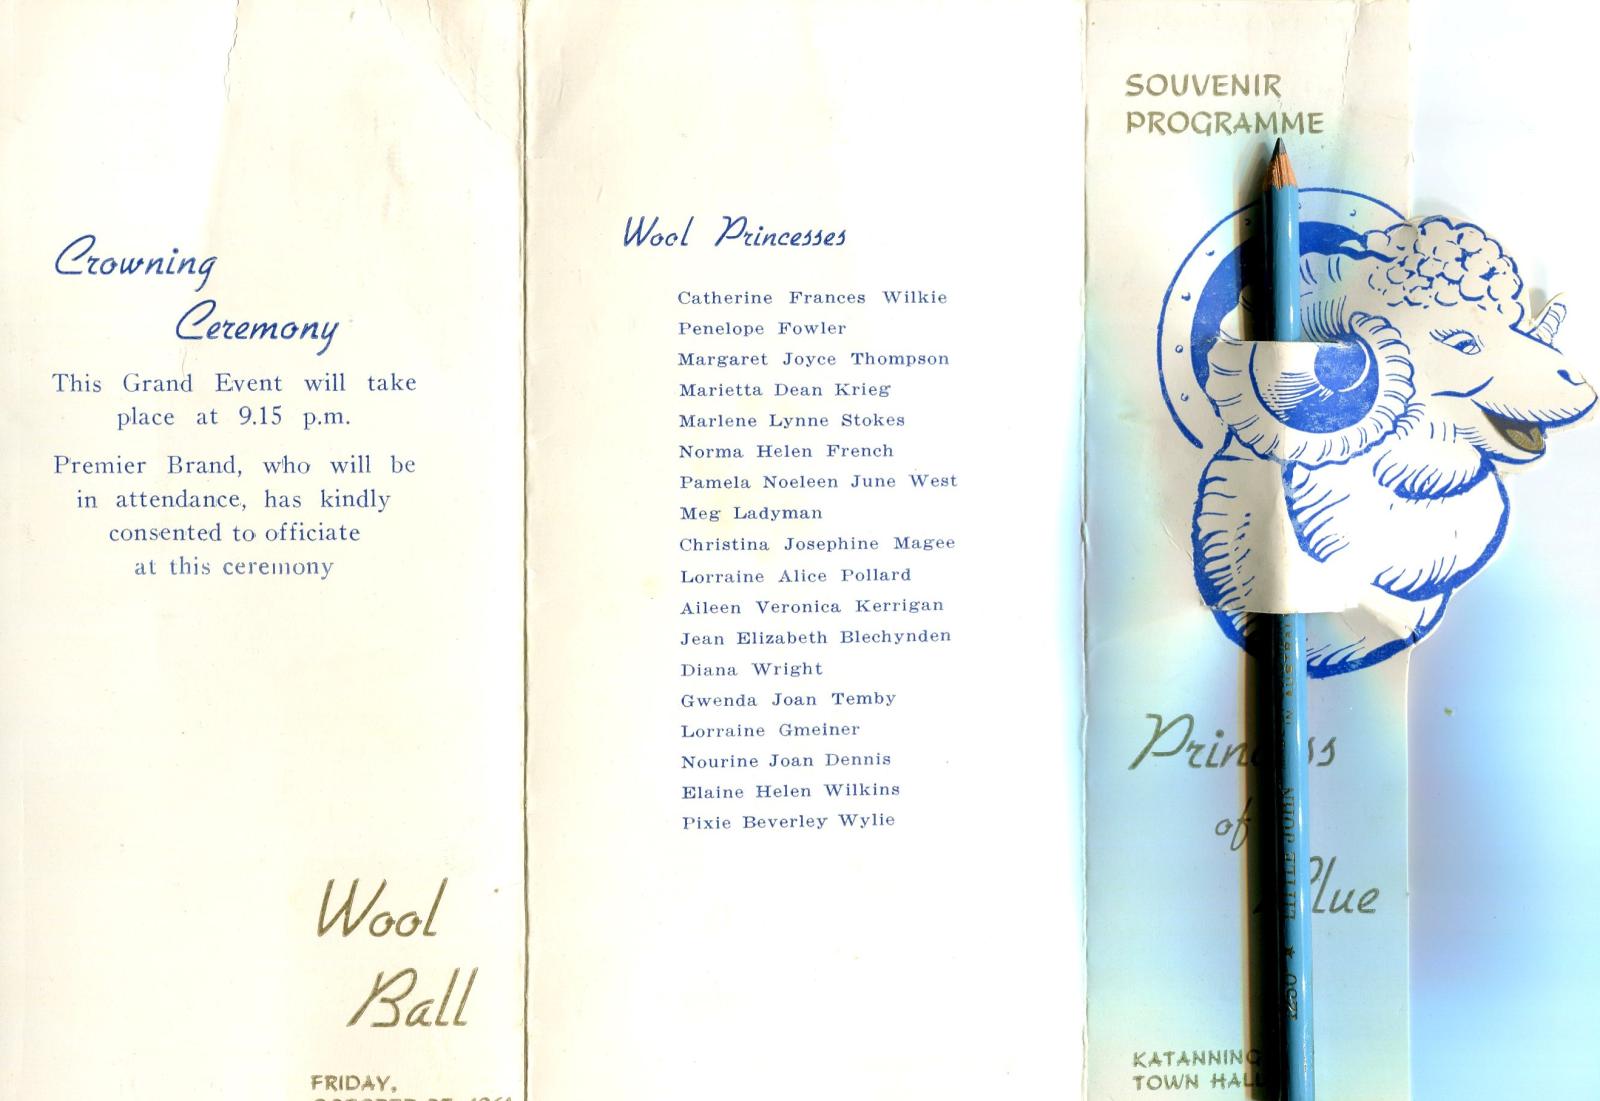 Crowning
Ceremony
This Grand Event will take
place at 9.15 p.m.
Premier Brand, who will be
in attendance, has kindly
consented to officiate
at this ceremony
Wool
Ball
FRIDAY,
OCTOBER
Wool Princesses
Catherine Frances Wilkie
Penelope Fowler
Margaret Joyce Thompson
Marietta Dean Krieg
Marlene Lynne Stokes
Norma Helen French
Pamela Noeleen June West
Meg Ladyman
Christina Josephine Magee
Lorraine Alice Pollard
Aileen Veronica Kerrigan
Jean Elizabeth Blechynden
Diana Wright
Gwenda Joan Temby
Lorraine Gmeiner
Nourine Joan Dennis
Elaine Helen Wilkins
Pixie Beverley Wylie
SOUVENIR
PROGRAMME
Princess
of
lue
KATANNING
TOWN HALL
1250 ★ LITTLE JOHN IN AUSTRA